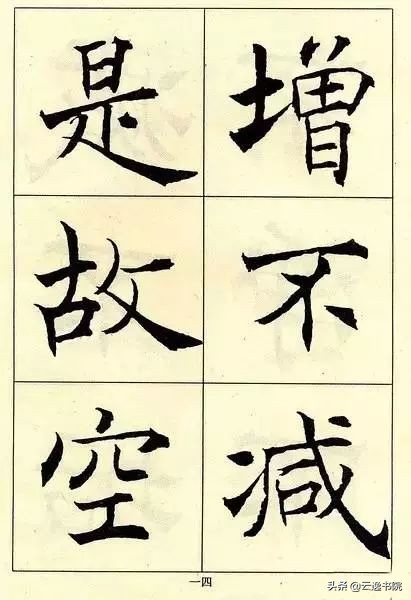 增不减
是故空
一四
头条 @云逸书院